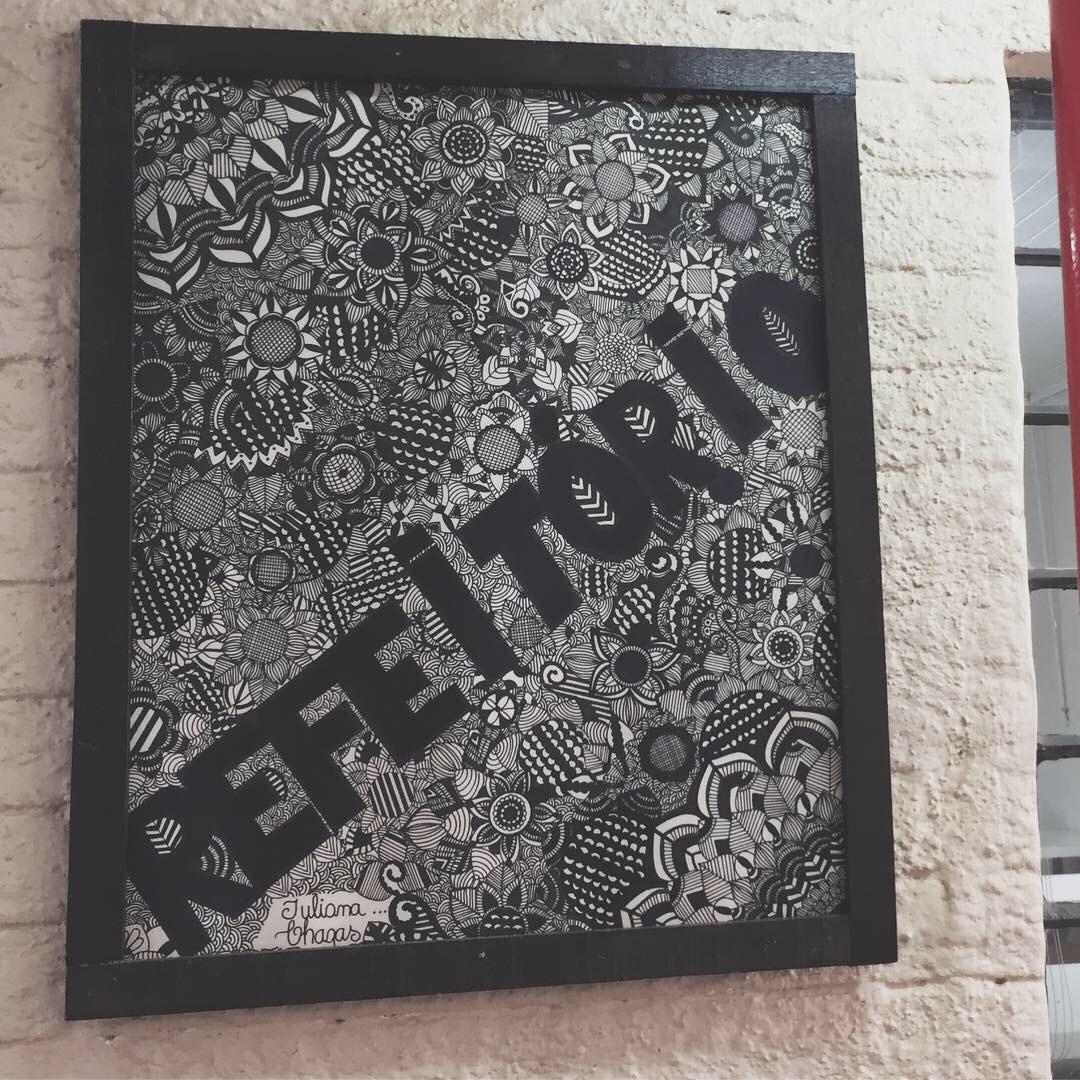 REFEITÓRIO
Juliana ...
Chagas